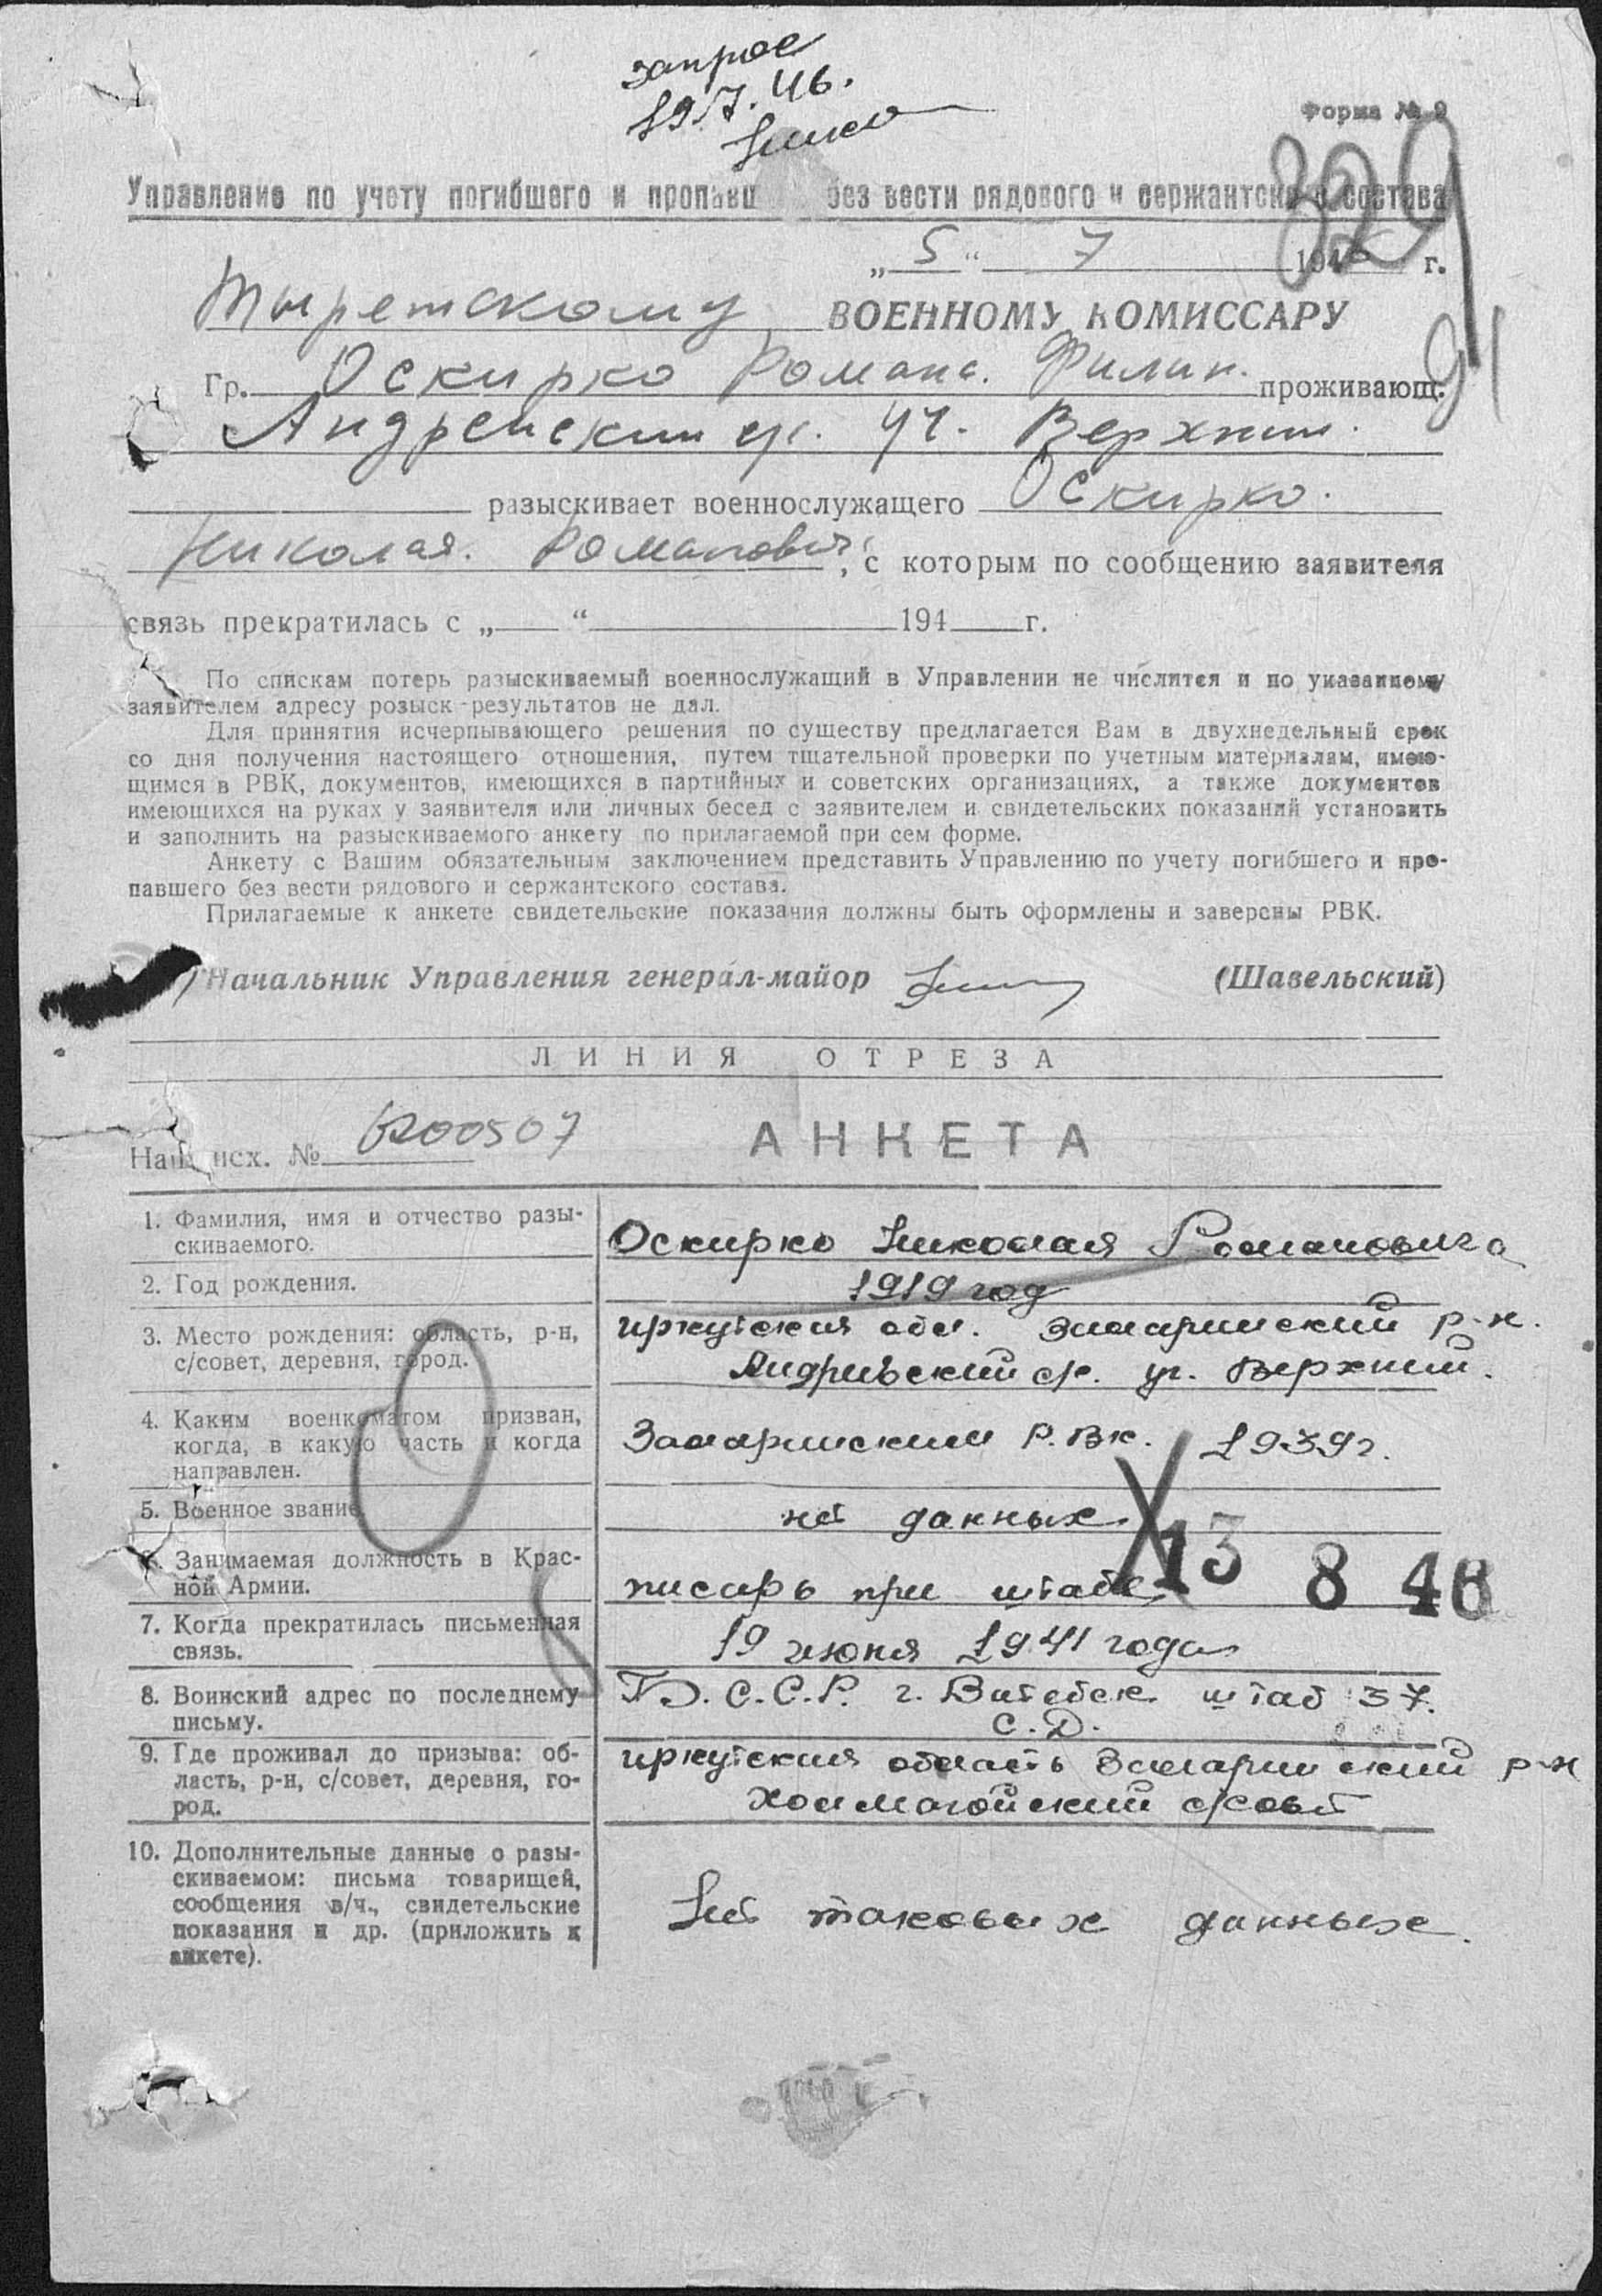 запрос
19/7.46.
Форма № 9
329
Управление по учету погибшего и пропавш без вести рядового и сержантско о состава
„ 5 “ 7 1946 г.
Тыретскому ВОЕННОМУ КОМИССАРУ
91
Гр. Оскирко Романа. Филип. проживающ.
Андреиский с/с. уч. Верхний.
разыскивает военнослужащего Оскирко.
Николая. Романович, с которым по сообщению заявителя
связь прекратилась с „ “ 194 г.
По спискам потерь разыскиваемый военнослужащий в Управлении не числится и по указанному
заявителем адресу розыск результатов не дал.
Для принятия исчерпывающего решения по существу предлагается Вам в двухнедельный срок
со дня получения настоящего отношения, путем тщательной проверки по учетным материалам, имею-
щимся в РВК, документов, имеющихся в партийных и советских организациях, а также документов
имеющихся на руках у заявителя или личных бесед с заявителем и свидетельских показаний установить
и заполнить на разыскиваемого анкету по прилагаемой при сем форме.
Анкету с Вашим обязательным заключением представить Управлению по учету погибшего и про-
павшего без вести рядового и сержантского состава.
Прилагаемые к анкете свидетельские показания должны быть оформлены и заверены РВК.
Начальник Управления генерал-майор (Шавельский)
ЛИНИЯ ОТРЕЗА
Наш исх. № 6200507
АНКЕТА
1. Фамилия, имя и отчество разы-
скиваемого.
Оскирко Николая Романовича
2. Год рождения.
1919 год
3. Место рождения: область, р-н,
с/совет, деревня, город.
иркутская обл. Заларинский р-н.
Андривский с/с. уч. Верхний.
4. Каким военкоматом призван,
когда, в какую часть и когда
направлен.
Заларинским Р.Вк. 1939г.
5. Военное звание.
нет данных
6. Занимаемая должность в Крас-
ной Армии.
писарь при штабе
13 8 46
7. Когда прекратилась письменная
связь.
19 июня 1941 года
8. Воинский адрес по последнему
письму.
Б.С.С.Р. г. Витебск штаб 37.
С.Д.
9. Где проживал до призыва: об-
ласть, р-н, с/совет, деревня, го-
род.
иркутская область Заларинский р-н
Холмогойский с/совет
10. Дополнительные данные о разы-
скиваемом: письма товарищей,
сообщения в/ч., свидетельские
показания и др. (приложить к
анкете).
Нет таковых данных.